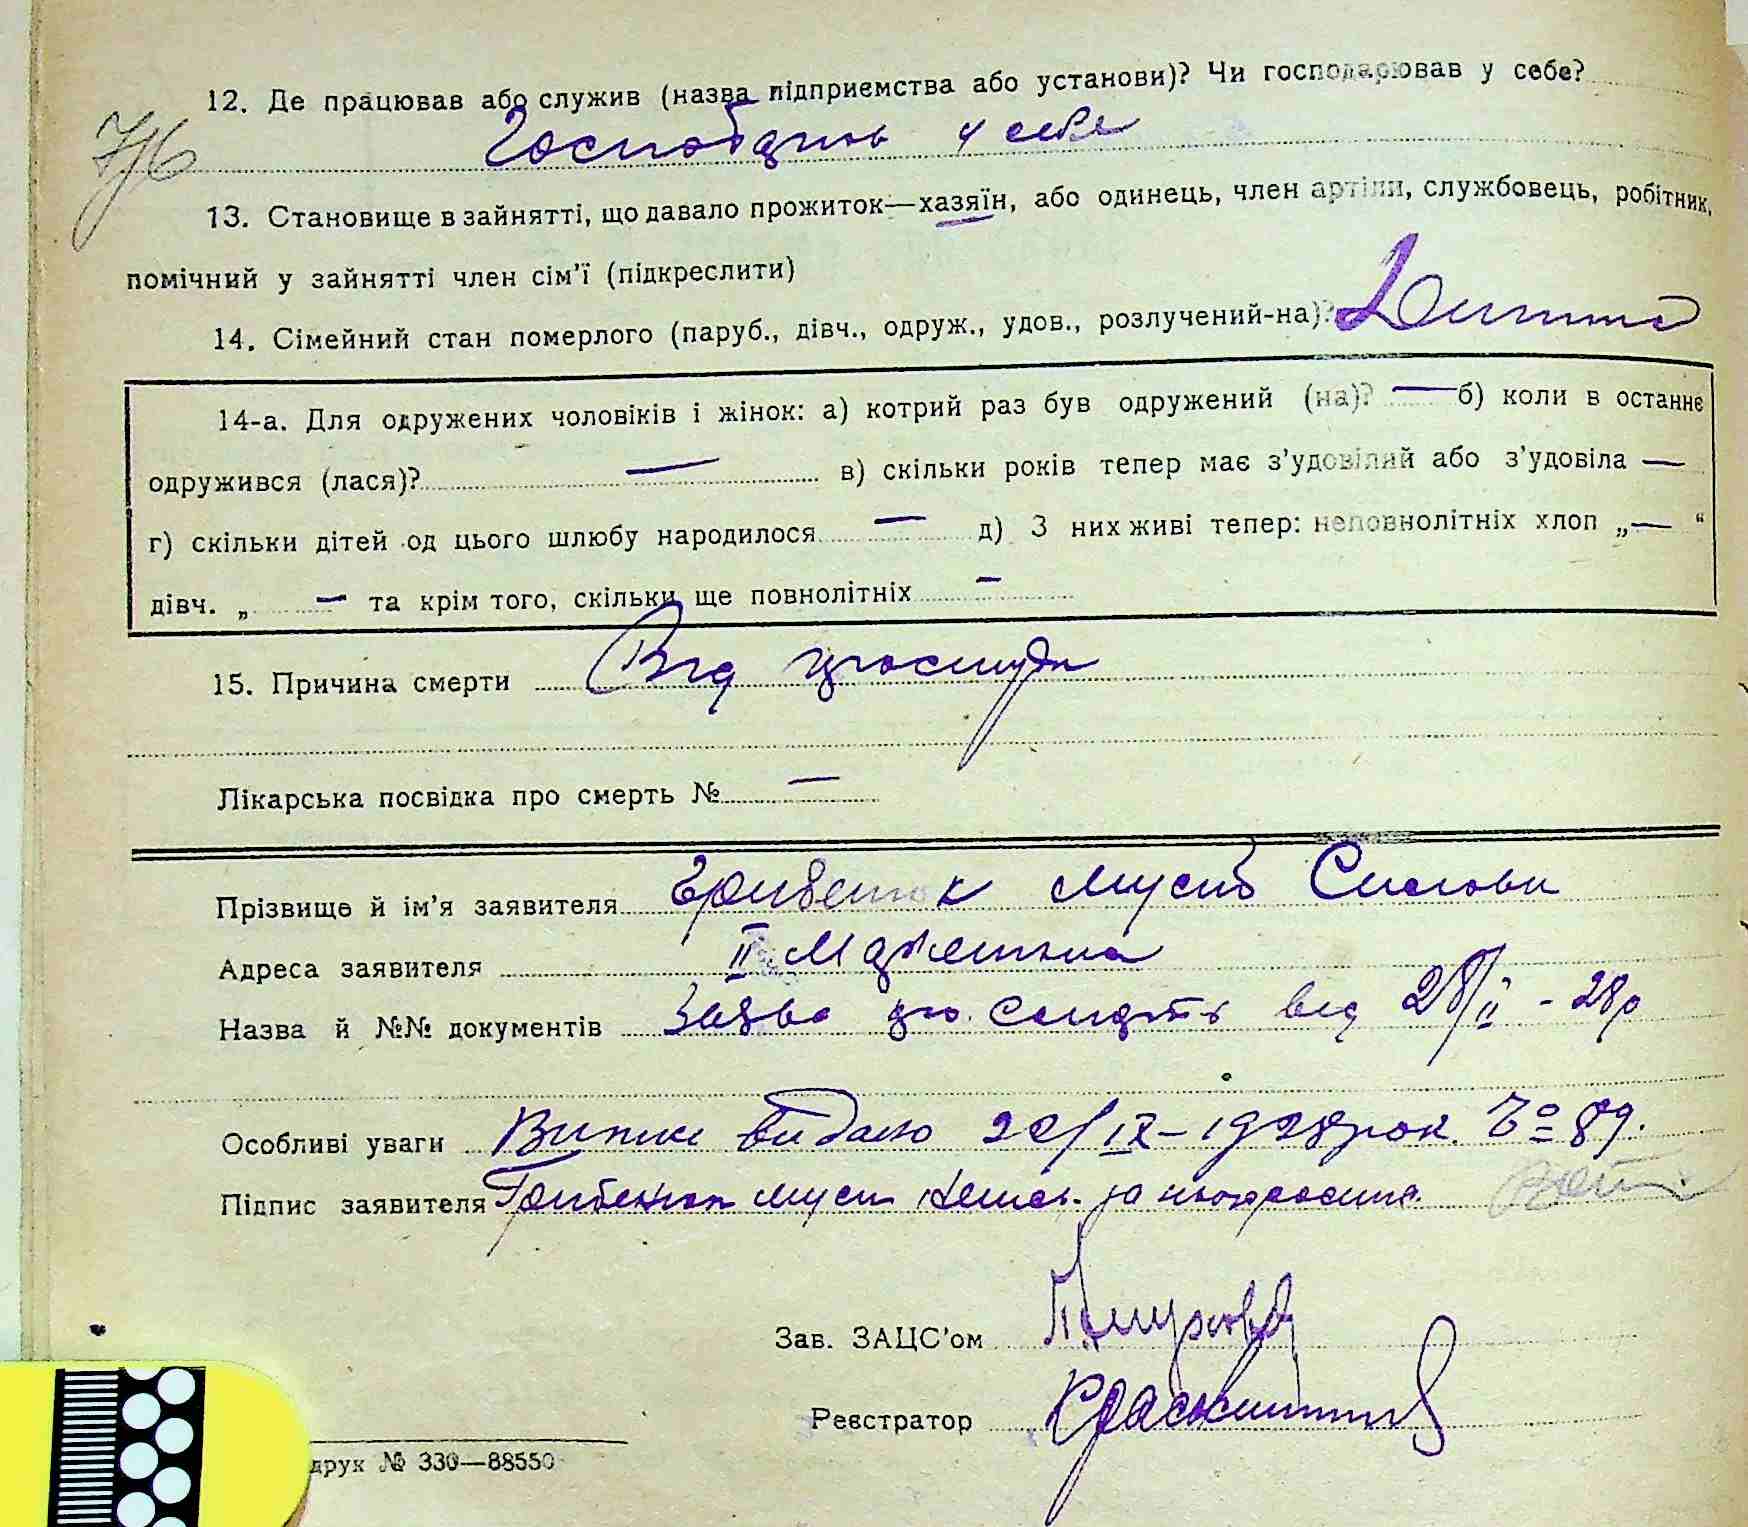 12. Де працював або служив (назва підприємства або установи)? Чи господарював у себе?
у себе
13. Становище в зайнятті, що давало прожиток—хазяїн, або одинець, член артіли, службовець, робітник,
помічний у зайнятті член сім'ї (підкреслити)
14. Сімейний стан померлого (паруб., дівч., одруж., удов., розлучений-на)? Дитина
14-а. Для одружених чоловіків і жінок: а) котрий раз був одружений (на)? — б) коли в останнє
одружився (лася)? — в) скільки років тепер має з'удовілий або з'удовіла —
г) скільки дітей од цього шлюбу народилося — д) З них живі тепер: неповнолітніх хлоп „— “
дівч. „ — та крім того, скільки ще повнолітніх —
15. Причина смерти Від простуди
Лікарська посвідка про смерть № —
Прізвище й ім'я заявителя Грибенюк Мусій
Адреса заявителя II
Назва й №№ документів Заява про смерть від 28/II - 28р
Особливі уваги 1928 рок. № 89.
Підпис заявителя Грибенюк
Зав. ЗАЦС'ом
Реєстратор
друк № 330—88550